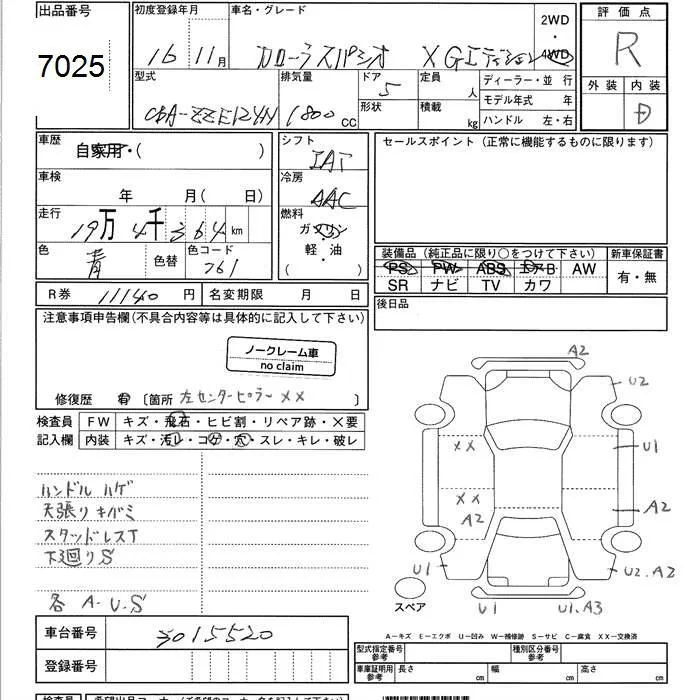 出品番号
7025
初度登録年月
16 11月
車名・グレード
カローラスパシオ XGエディション
2WD
・
4WD
評価点
R
外装 内装
D
型式
CBA-ZZE124N
排気量
1800 CC
ドア
5
形状
定員
人
積載
kg
ディーラー・並行
モデル年式 年
ハンドル 左・右
車歴
自家用・( )
車検
年 月(日)
走行
19万4千364 km
色
青
色替
色コード
761
シフト
IAT
冷房
AAC
燃料
ガソリン
・
軽・油
( )
セールスポイント (正常に機能するものに限ります)
装備品 (純正品に限り○をつけて下さい)
PS PW ABS エアB AW
SR ナビ TV カワ
新車保証書
有・無
後日品
R券 11140 円
名変期限 月 日
注意事項申告欄(不具合内容等は具体的に記入して下さい)
ノークレーム車
no claim
修復歴 有 〔箇所 左センターピラー XX 〕
検査員
記入欄
FW キズ・飛石・ヒビ割・リペア跡・X要
内装 キズ・汚レ・コゲ・穴・スレ・キレ・破レ
ハンドル ハゲ
天張りキバミ
スタッドレスT
下廻りS
各 A.U.S
A2
U2
XX
U1
XX
A2
A2
U1
U2.A2
スペア
U1
U1.A3
A-キズ E-エクボ U-凹み W-補修跡 S-サビ C-腐食 XX-交換済
車台番号
3015520
登録番号
型式指定番号
参考
種別区分番号
参考
車庫証明用
参考
長さ cm
幅 cm
高さ cm